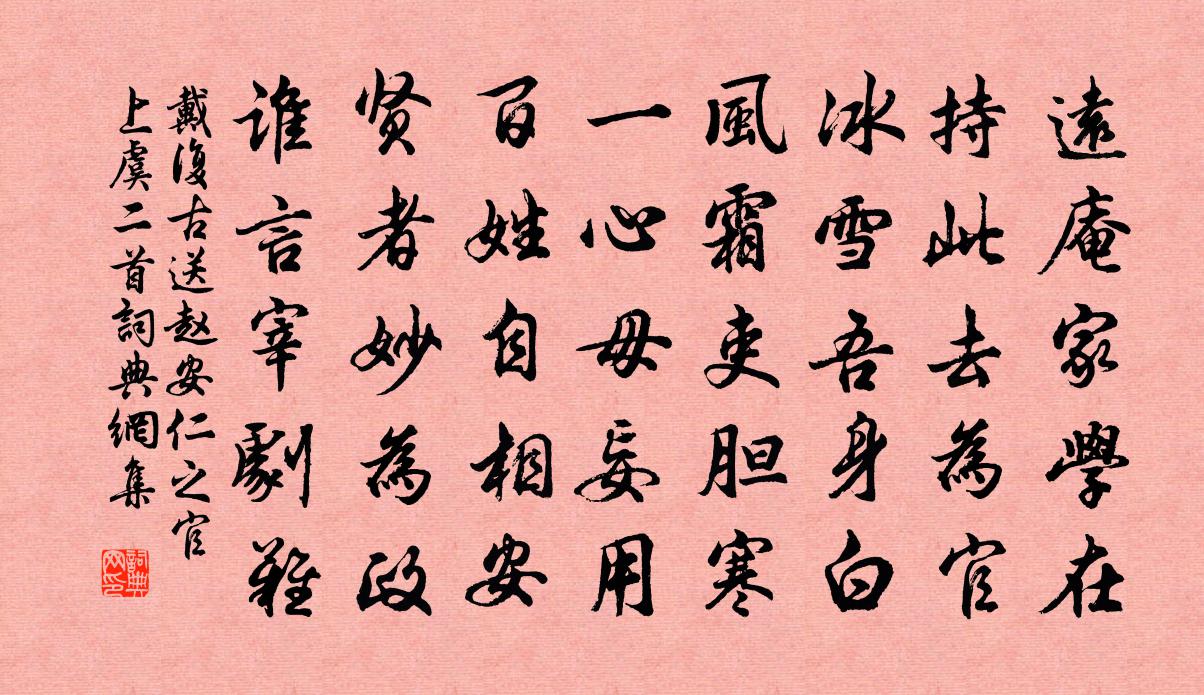 遠庵家學在
持此去為官
冰雪吾身白
風霜吏胆寒
一心毋妄用
百姓自相安
贤者妙為政
谁言宰劇難
戴復古送赵安仁之官
上虞二首詞典網集
詞典
网印